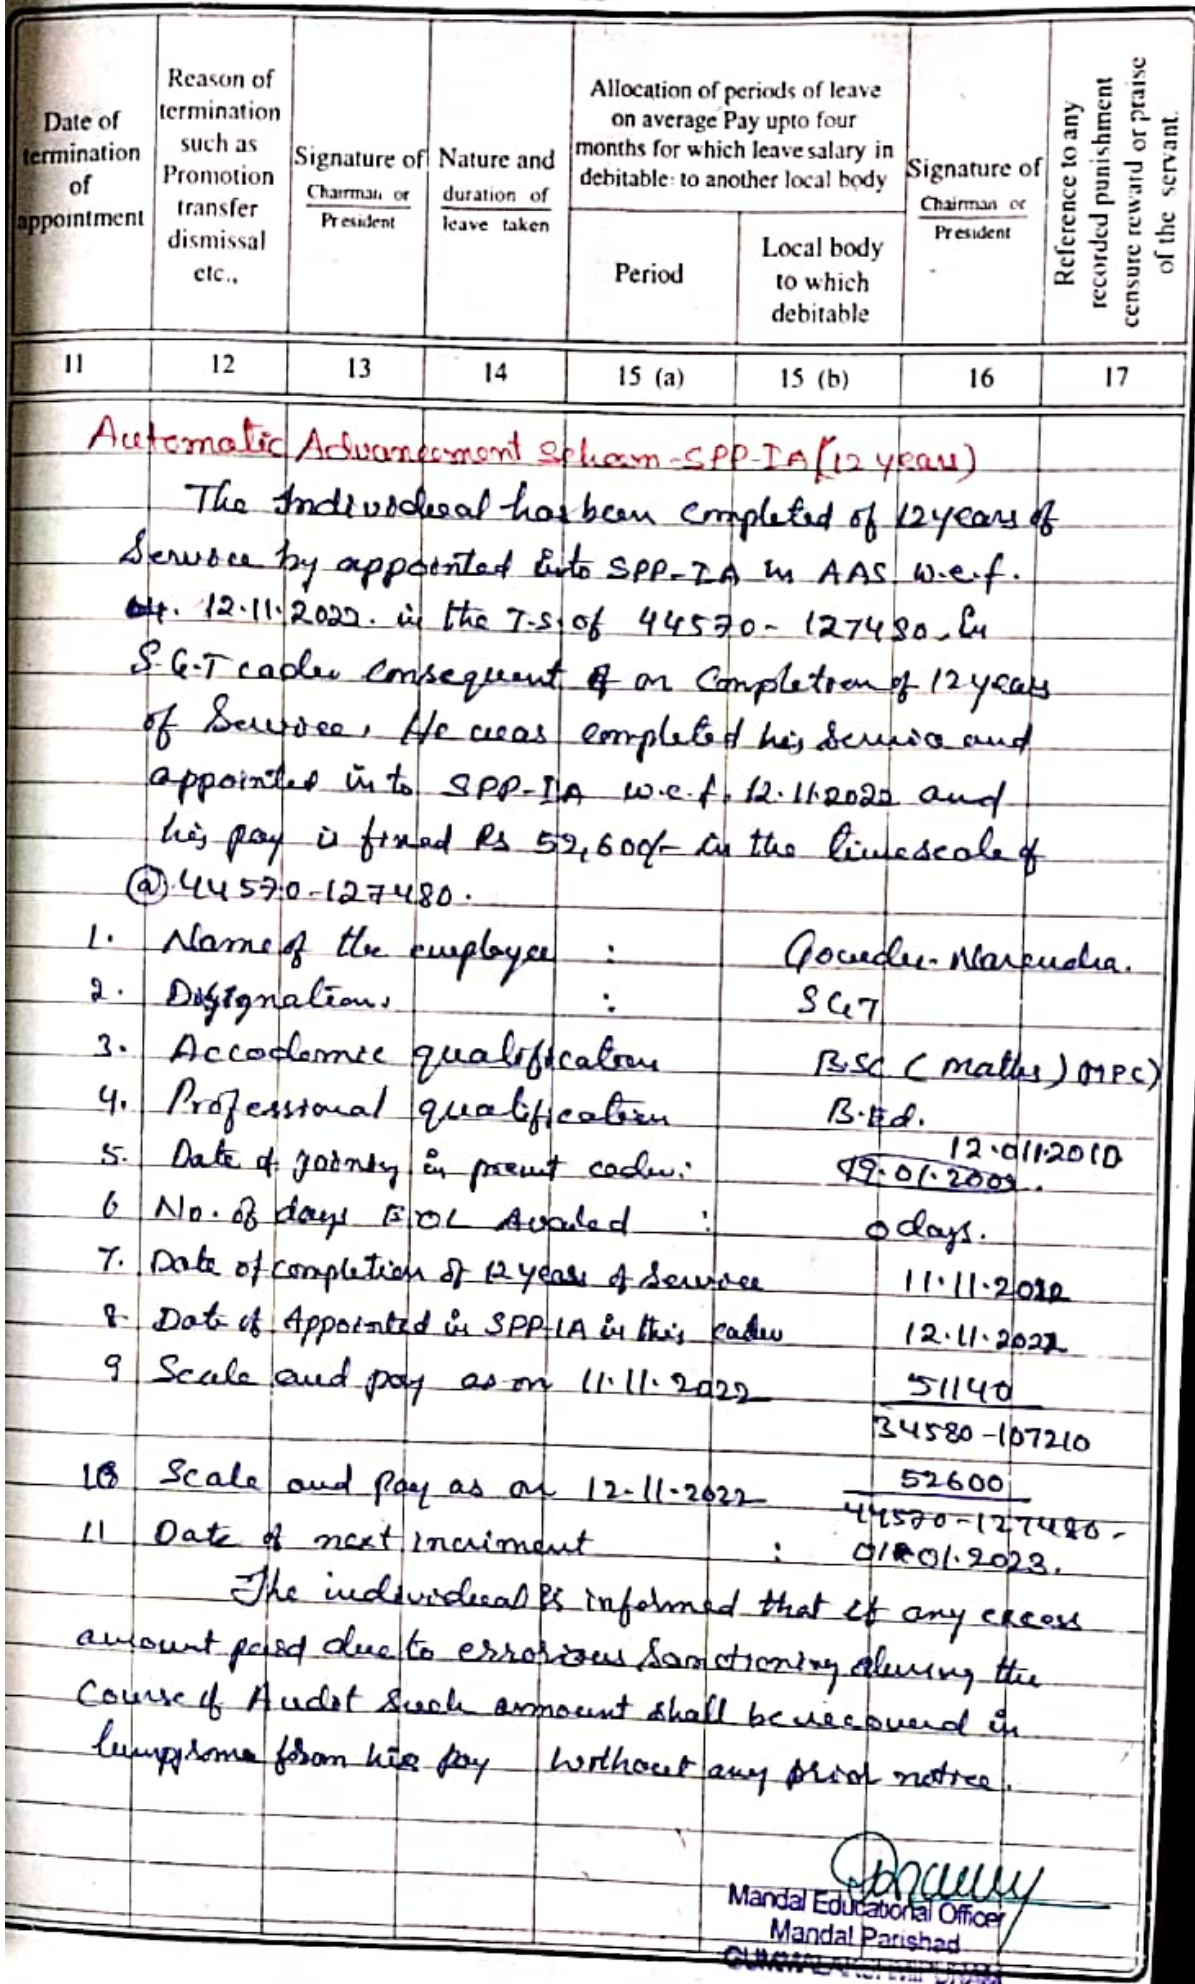 Date of termination of appointment
Reason of termination such as Promotion transfer dismissal etc.,
Signature of Chairman or President
Nature and duration of leave taken
Allocation of periods of leave on average Pay upto four months for which leave salary in debitable: to another local body
Period
Local body to which debitable
Signature of Chairman or President
Reference to any recorded punishment censure reward or praise of the servant.
11 12 13 14 15 (a) 15 (b) 16 17
Automatic Advancement Scheam-SPP-IA (12 years)
The Individual has been completed of 12 years of
Service by appointed into SPP-IA in AAS w.e.f.
12.11.2022. in the T.S. of 44570- 127480. In
S.G.T cader consequent on Completion of 12 years
of Service. He was completed his Service and
appointed in to SPP-IA w.e.f. 12.11.2022 and
his pay is fixed Rs 52,600/- in the timescale of
@ 44570-127480.
1. Name of the employee : Gowdu. Narendra.
2. Disignation. : SGT
3. Accodemic qualification B.Sc (Maths) (MPC)
4. Professional qualification B.Ed.
12.011.2010
5. Date of joining in present cader:
6 No. of days EOL Availed : 0 days.
7. Date of completion of 12 years of Service 11.11.2022
8. Date of Appointed in SPP-IA in this cader 12.11.2022
9 Scale and pay as on 11.11.2022 51140
34580-107210
10 Scale and Pay as on 12-11-2022 52600
44570-127480-
11 Date of next incriment : 01.01.2023.
The individual is informed that if any excess
amount paid due to errorious Sanctioning during the
Course of Audit Such ammount shall be recovered in
lumpsome from his pay without any prior notice.
Mandal Educational Officer
Mandal Parishad